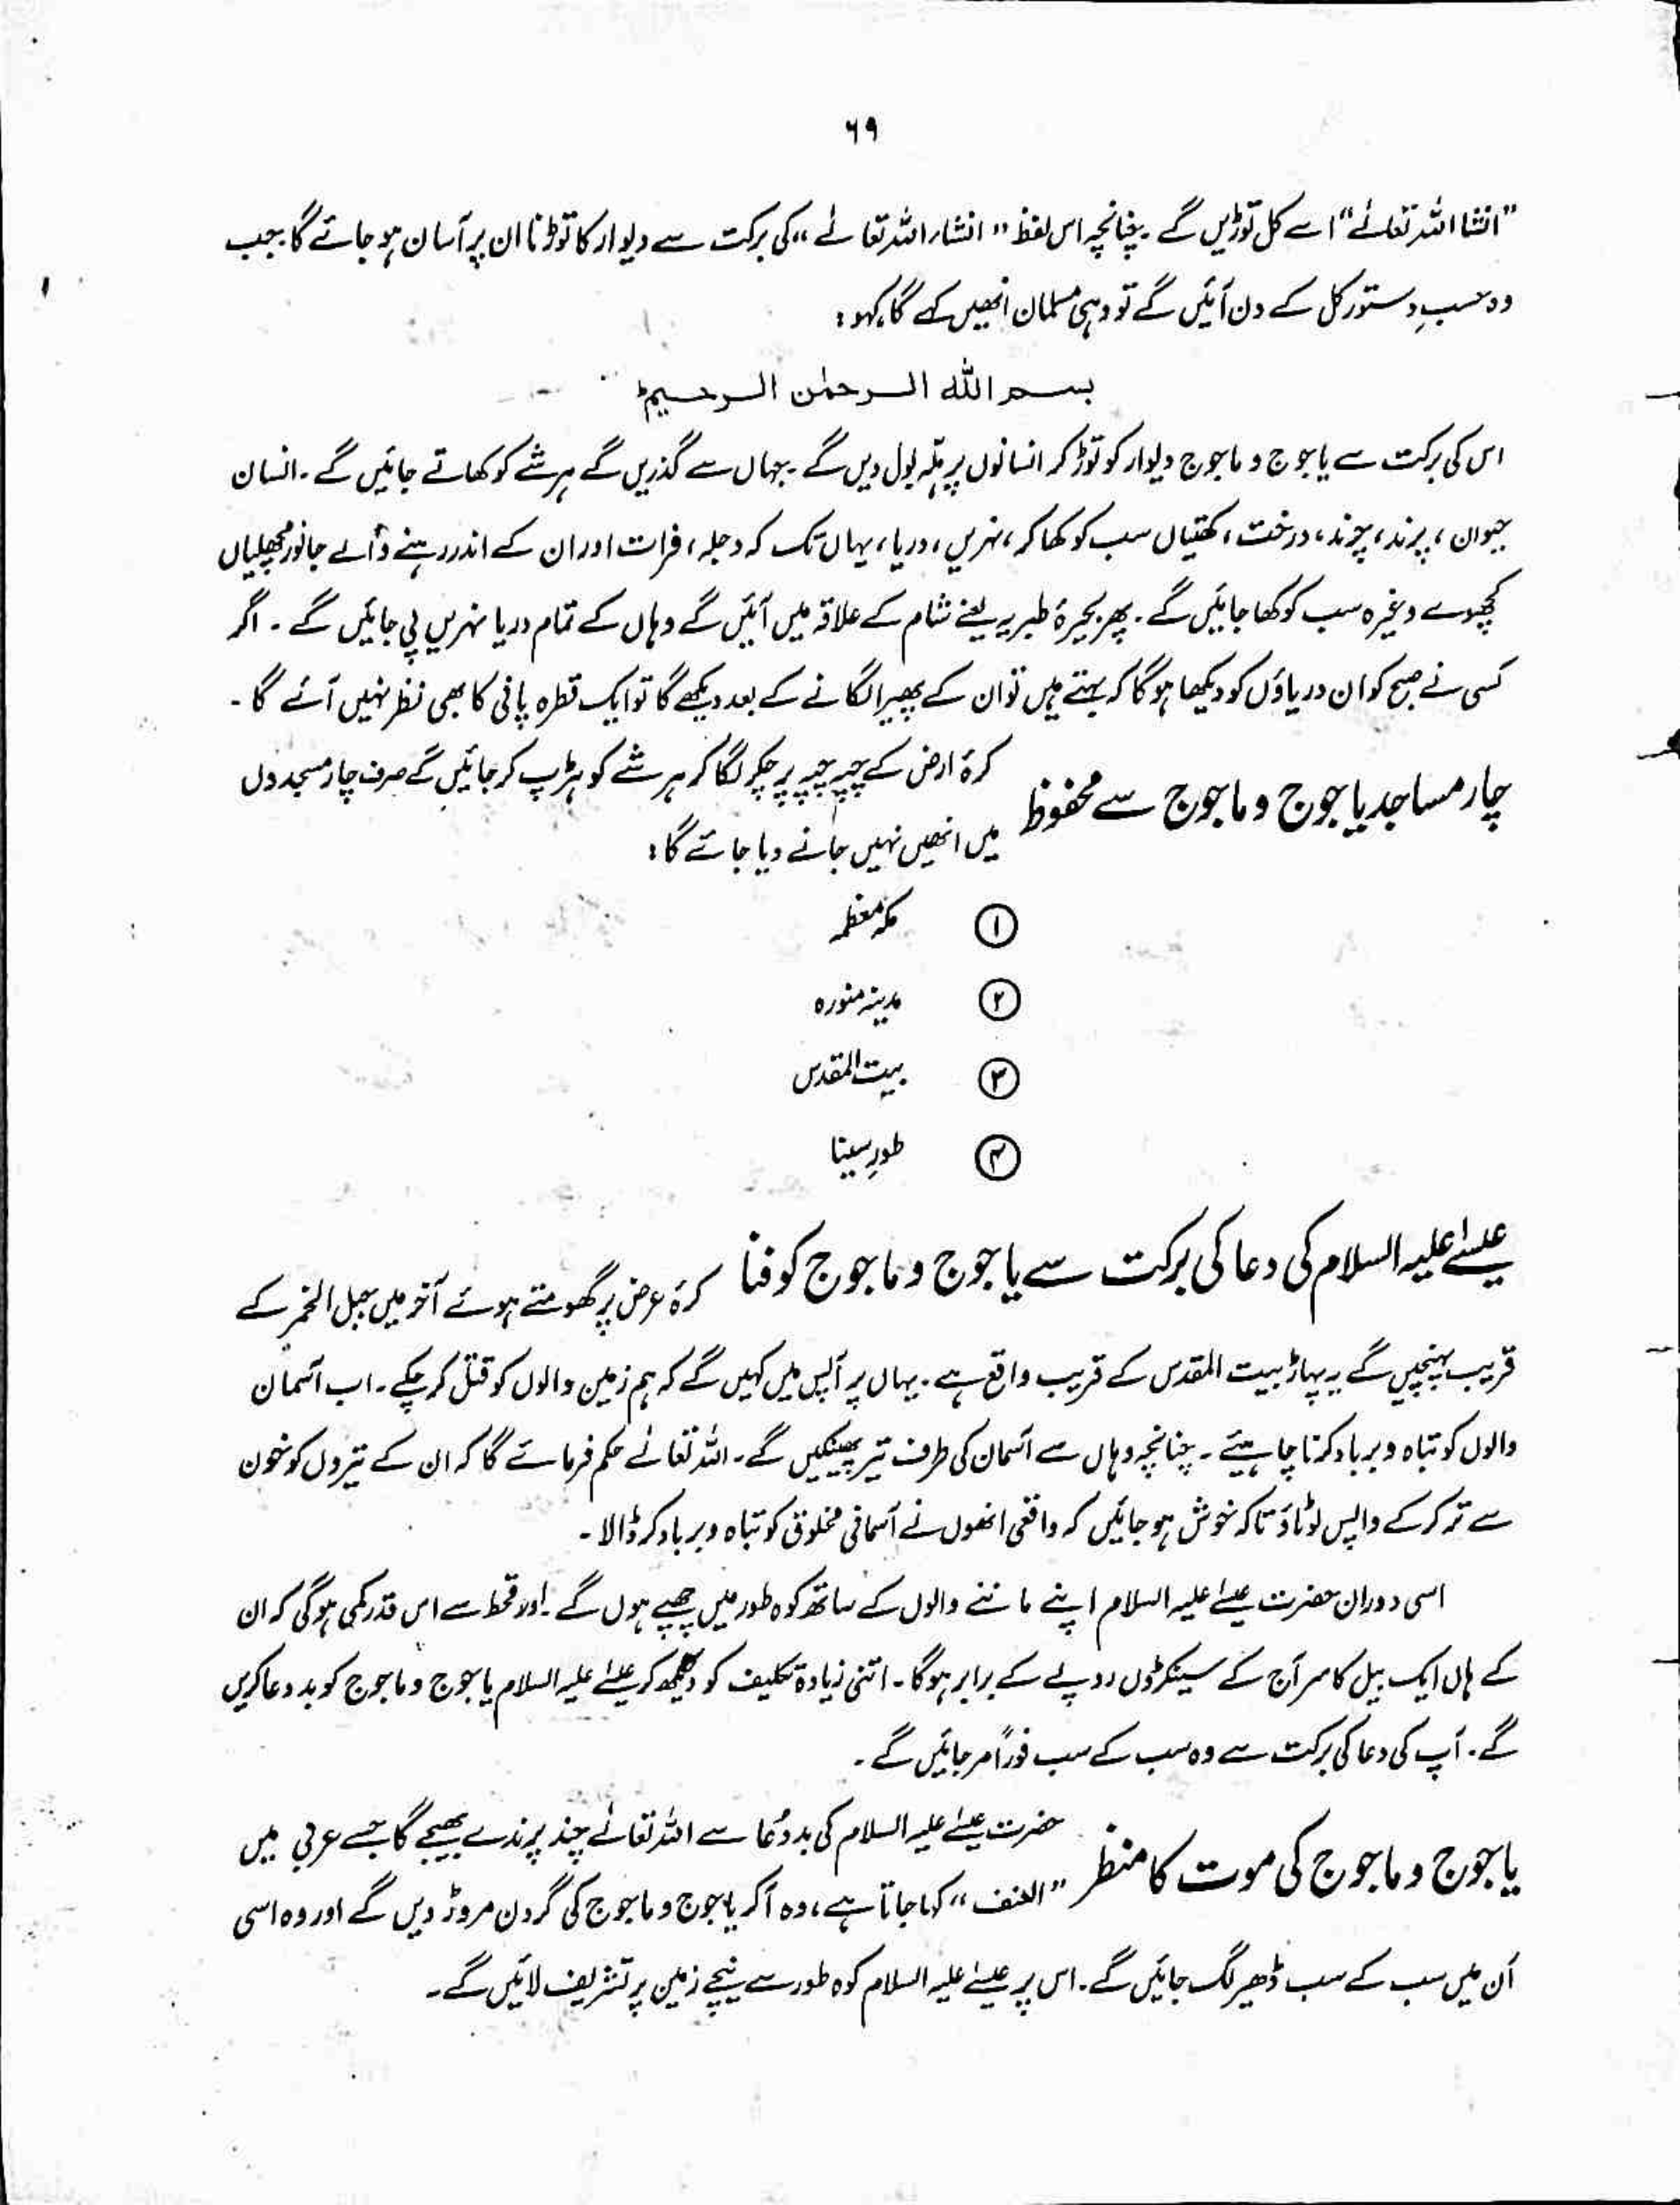 ۶۹
"انشااللہ تعالےٰ" اسے کل توڑیں گے۔ چنانچہ اس لفظ "انشاء اللہ تعالےٰ" کی برکت سے دیوار کا توڑنا ان پر آسان ہو جائے گا۔ جب
وہ حسبِ دستور کل کے دن آئیں گے تو وہی مسلمان انھیں کہے گا کہو:
بسم اللہ الرحمٰن الرحیم
اس کی برکت سے یاجوج و ماجوج دیوار کو توڑ کر انسانوں پر ہلّہ بول دیں گے۔ جہاں سے گذریں گے ہر شے کو کھاتے جائیں گے۔ انسان
حیوان، پرند، چرند، درخت، کھتیاں سب کو کھا کر، نہریں، دریا، یہاں تک کہ دجلہ، فرات اور ان کے اندر رہنے والے جانور مچھلیاں
کچھوے وغیرہ سب کو کھا جائیں گے۔ پھر بحیرۂ طبریہ یعنے شام کے علاقہ میں آئیں گے وہاں کے تمام دریا نہریں پی جائیں گے۔ اگر
کسی نے صبح کو ان دریاؤں کو دیکھا ہوگا کہ بہتے ہیں تو ان کے پھیرا لگانے کے بعد دیکھے گا تو ایک قطرہ پانی کا بھی نظر نہیں آئے گا۔
چار مساجد یاجوج و ماجوج سے محفوظ کرۂ ارض کے چپہ چپہ پر چکر لگا کر ہر شے کو ہڑپ کر جائیں گے صرف چار مسجدوں
میں انھیں نہیں جانے دیا جائے گا:
① مکہ معظمہ
② مدینہ منورہ
③ بیت المقدس
④ طورِ سینا
عیسےٰ علیہ السلام کی دعا کی برکت سے یاجوج و ماجوج کو فنا کرۂ عرض پر گھومتے ہوئے آخر میں جبل الخمر کے
قریب پہنچیں گے یہ پہاڑ بیت المقدس کے قریب واقع ہے۔ یہاں پر آپس میں کہیں گے کہ ہم زمین والوں کو قتل کر چکے۔ اب آسمان
والوں کو تباہ و برباد کرنا چاہیئے۔ چنانچہ وہاں سے آسمان کی طرف تیر پھینکیں گے۔ اللہ تعالےٰ حکم فرمائے گا کہ ان کے تیروں کو خون
سے تر کر کے واپس لوٹاؤ تاکہ خوش ہو جائیں کہ واقعی انھوں نے آسمانی مخلوق کو تباہ و برباد کر ڈالا۔
اسی دوران حضرت عیسےٰ علیہ السلام اپنے ماننے والوں کے ساتھ کوہ طور میں چھپے ہوں گے۔ اور قحط سے اس قدر کمی ہوگی کہ ان
کے ہاں ایک بیل کا سر آج کے سینکڑوں روپے کے برابر ہوگا۔ اتنی زیادہ تکلیف کو دیکھ کر عیسےٰ علیہ السلام یاجوج و ماجوج کو بددعا کریں
گے۔ آپ کی دعا کی برکت سے وہ سب کے سب فوراً مر جائیں گے۔
یاجوج و ماجوج کی موت کا منظر حضرت عیسےٰ علیہ السلام کی بددُعا سے اللہ تعالےٰ چند پرندے بھیجے گا جسے عربی میں
کہا جاتا ہے، وہ آکر یاجوج و ماجوج کی گردن مروڑ دیں گے اور وہ اسی
آن میں سب کے سب ڈھیر لگ جائیں گے۔ اس پر عیسےٰ علیہ السلام کوہ طور سے نیچے زمین پر تشریف لائیں گے۔